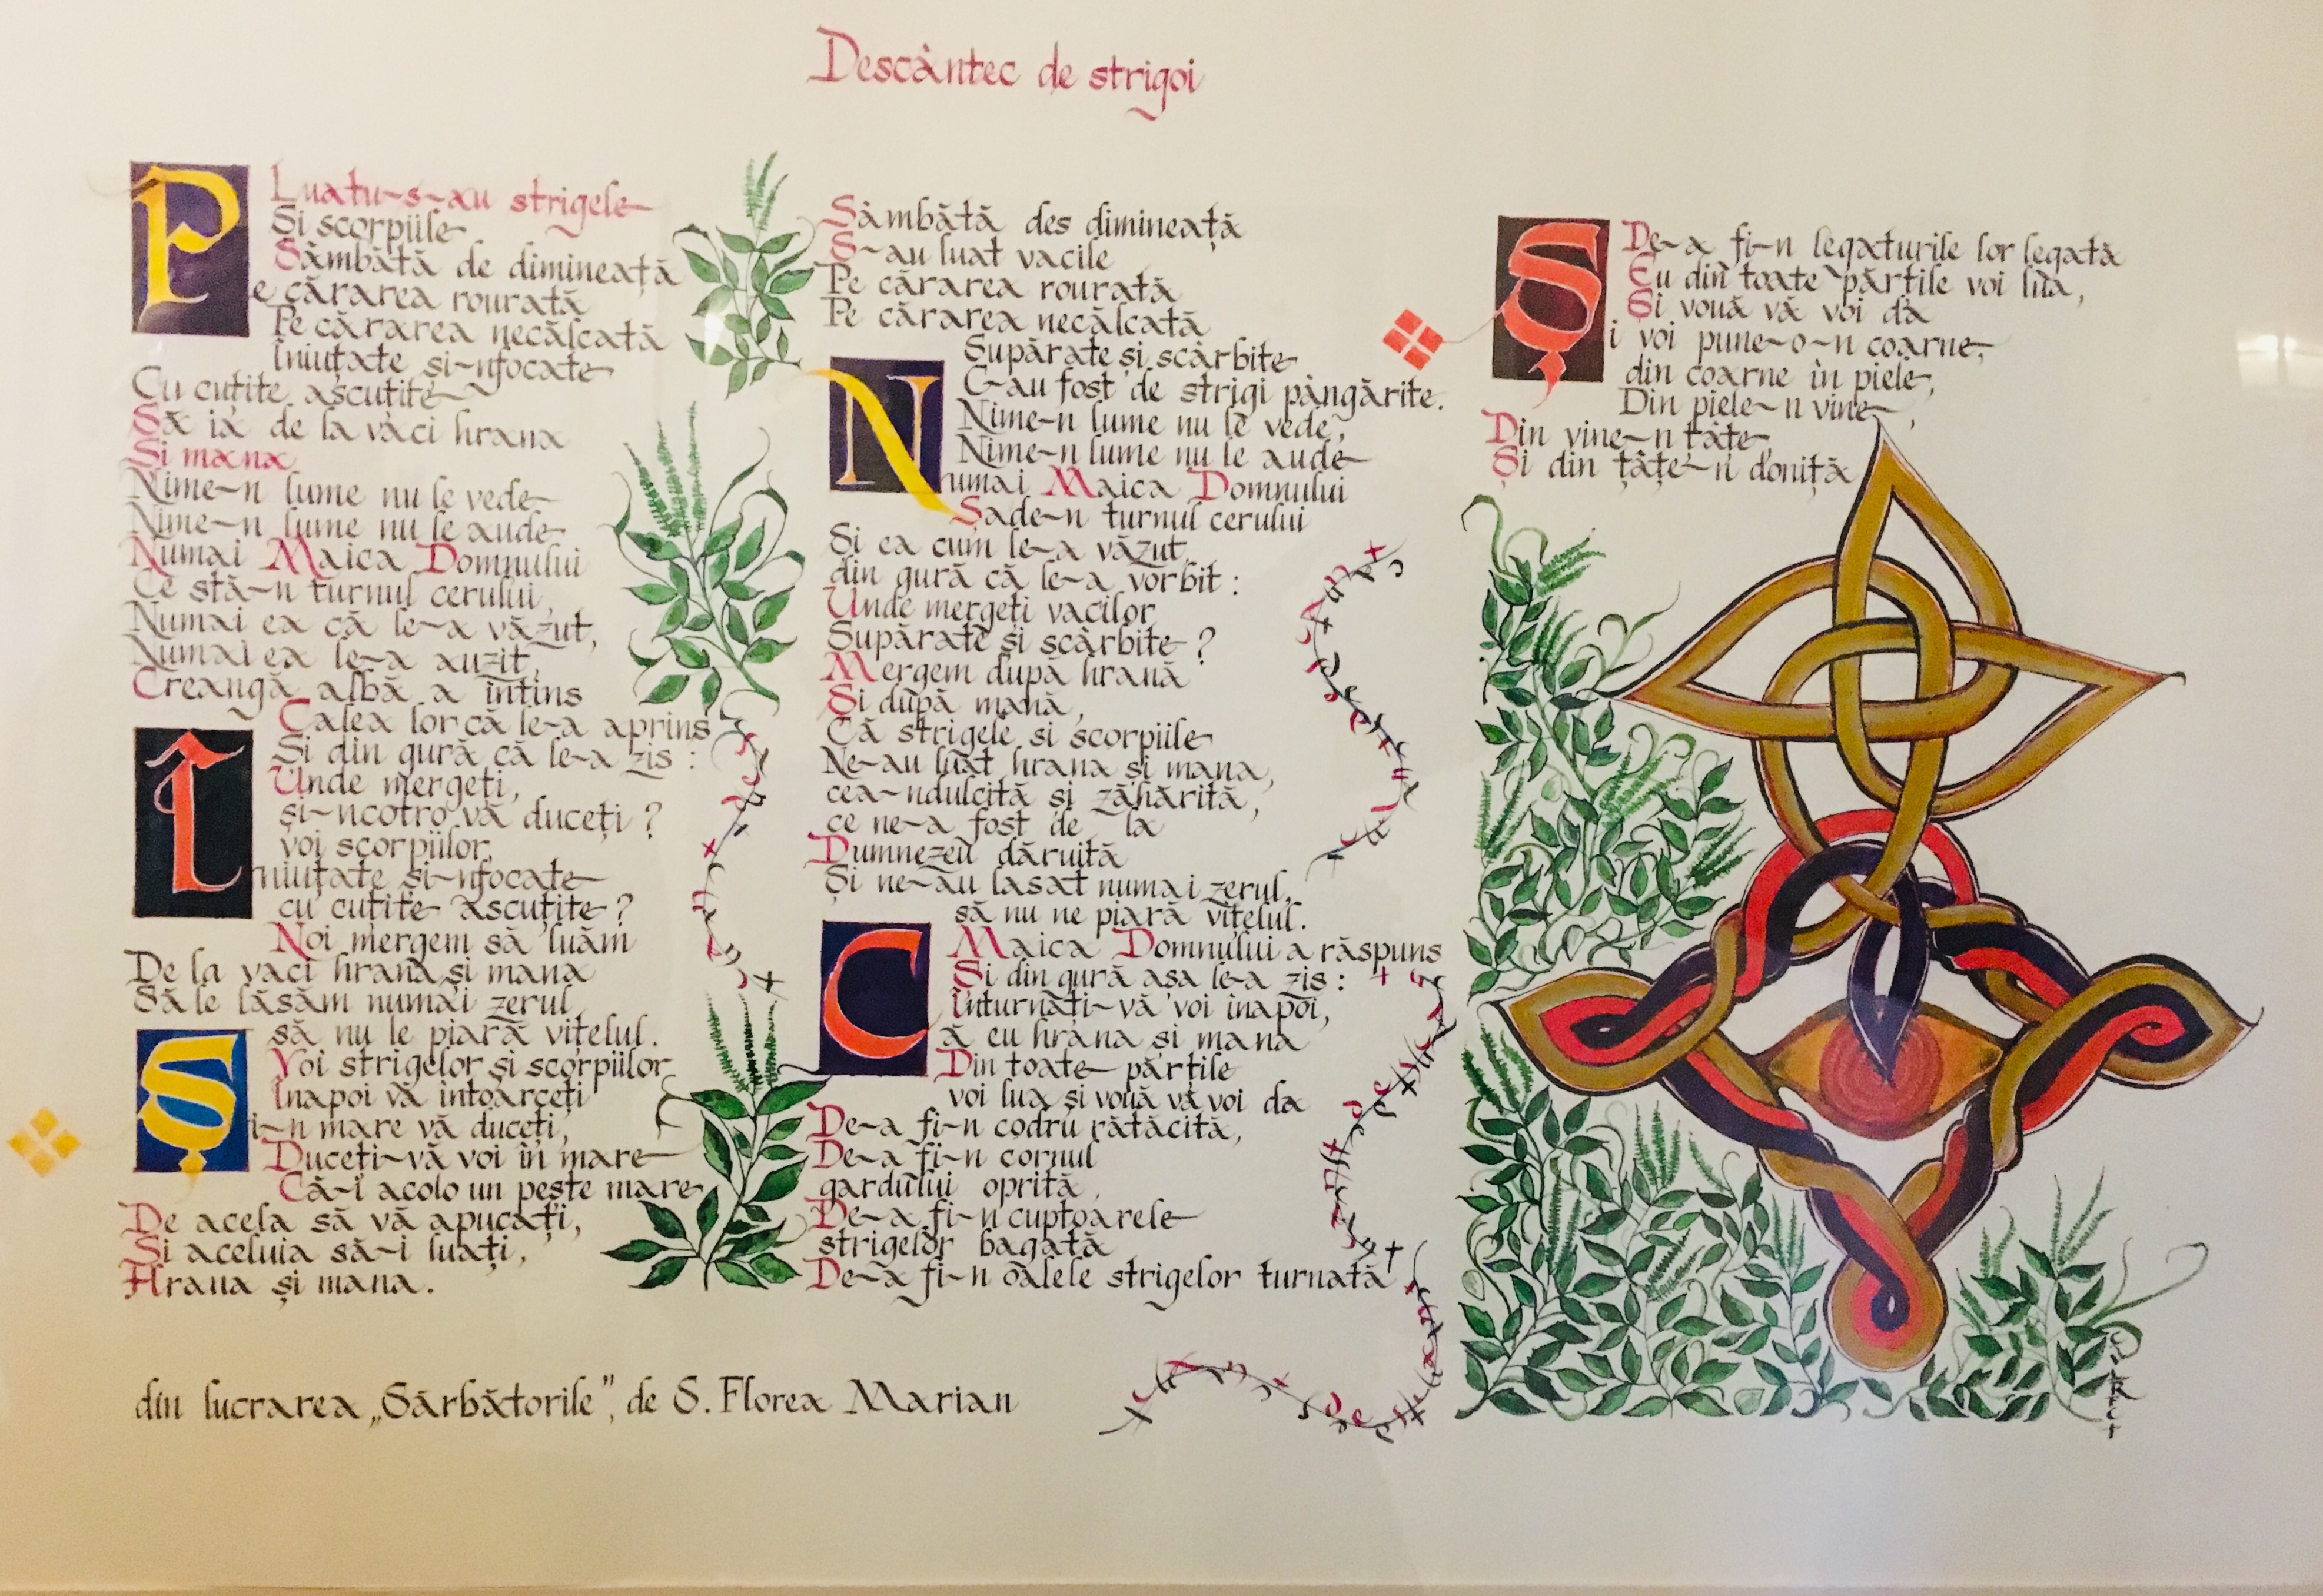 Descântec de strigoi
Luatu-s-au strigele
Și scorpiile
Sâmbătă de dimineață
Pe cărarea rourată
Pe cărarea necălcată
Îniuțate și-nfocate
Cu cuțite ascuțite
Să ia de la vaci hrana
Și mana
Nime-n lume nu le vede
Nime-n lume nu le aude
Numai Maica Domnului
Ce stă-n turnul cerului,
Numai ea că le-a văzut,
Numai ea le-a auzit,
Creangă albă a întins
Calea lor că le-a aprins
Și din gură că le-a zis:
Unde mergeți,
și-ncotro vă duceți?
voi scorpiilor,
Îniuțate și-nfocate
cu cuțite ascuțite?
Noi mergem să luăm
De la vaci hrana și mana
Să le lăsăm numai zerul,
să nu le piară vițelul.
Voi strigelor și scorpiilor
Înapoi vă întoarceți
Și-n mare vă duceți,
Duceți-vă voi în mare
Că-i acolo un pește mare
De acela să vă apucați,
Și aceluia să-i luați,
Hrana și mana.
Sâmbătă des dimineață
S-au luat vacile
Pe cărarea rourată
Pe cărarea necălcată
Supărate și scârbite
C-au fost de strigi pângărite.
Nime-n lume nu le vede,
Nime-n lume nu le aude
Numai Maica Domnului
Șade-n turnul cerului
Și ea cum le-a văzut,
din gură că le-a vorbit:
Unde mergeți vacilor
Supărate și scârbite?
Mergem după hrană
Și după mană,
Că strigele si scorpiile
Ne-au luat hrana și mana,
cea-ndulcită și zăhărită,
ce ne-a fost de la
Dumnezeu dăruită
Și ne-au lasat numai zerul,
să nu ne piară vițelul.
Maica Domnului a răspuns
Și din gură așa le-a zis:
Înturnați-vă voi înapoi,
Că eu hrana și mana
Din toate părțile
voi lua și vouă vă voi da
De-a fi-n codru rătăcită,
De-a fi-n cornul
gardului oprită,
De-a fi-n cuptoarele
strigelor bagată
De-a fi-n oalele strigelor turnată
De-a fi-n legaturile lor legată
Eu din toate părțile voi lua,
Și vouă vă voi da
Și voi pune-o-n coarne,
din coarne în piele,
Din piele-n vine,
Din vine-n țâțe
Și din țâțe-n doniță
din lucrarea „Sărbătorile”, de S. Florea Marian